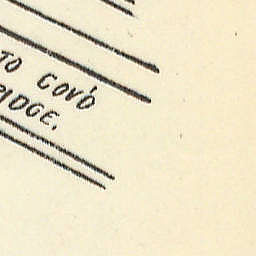 TO COV'D
RIDGE.